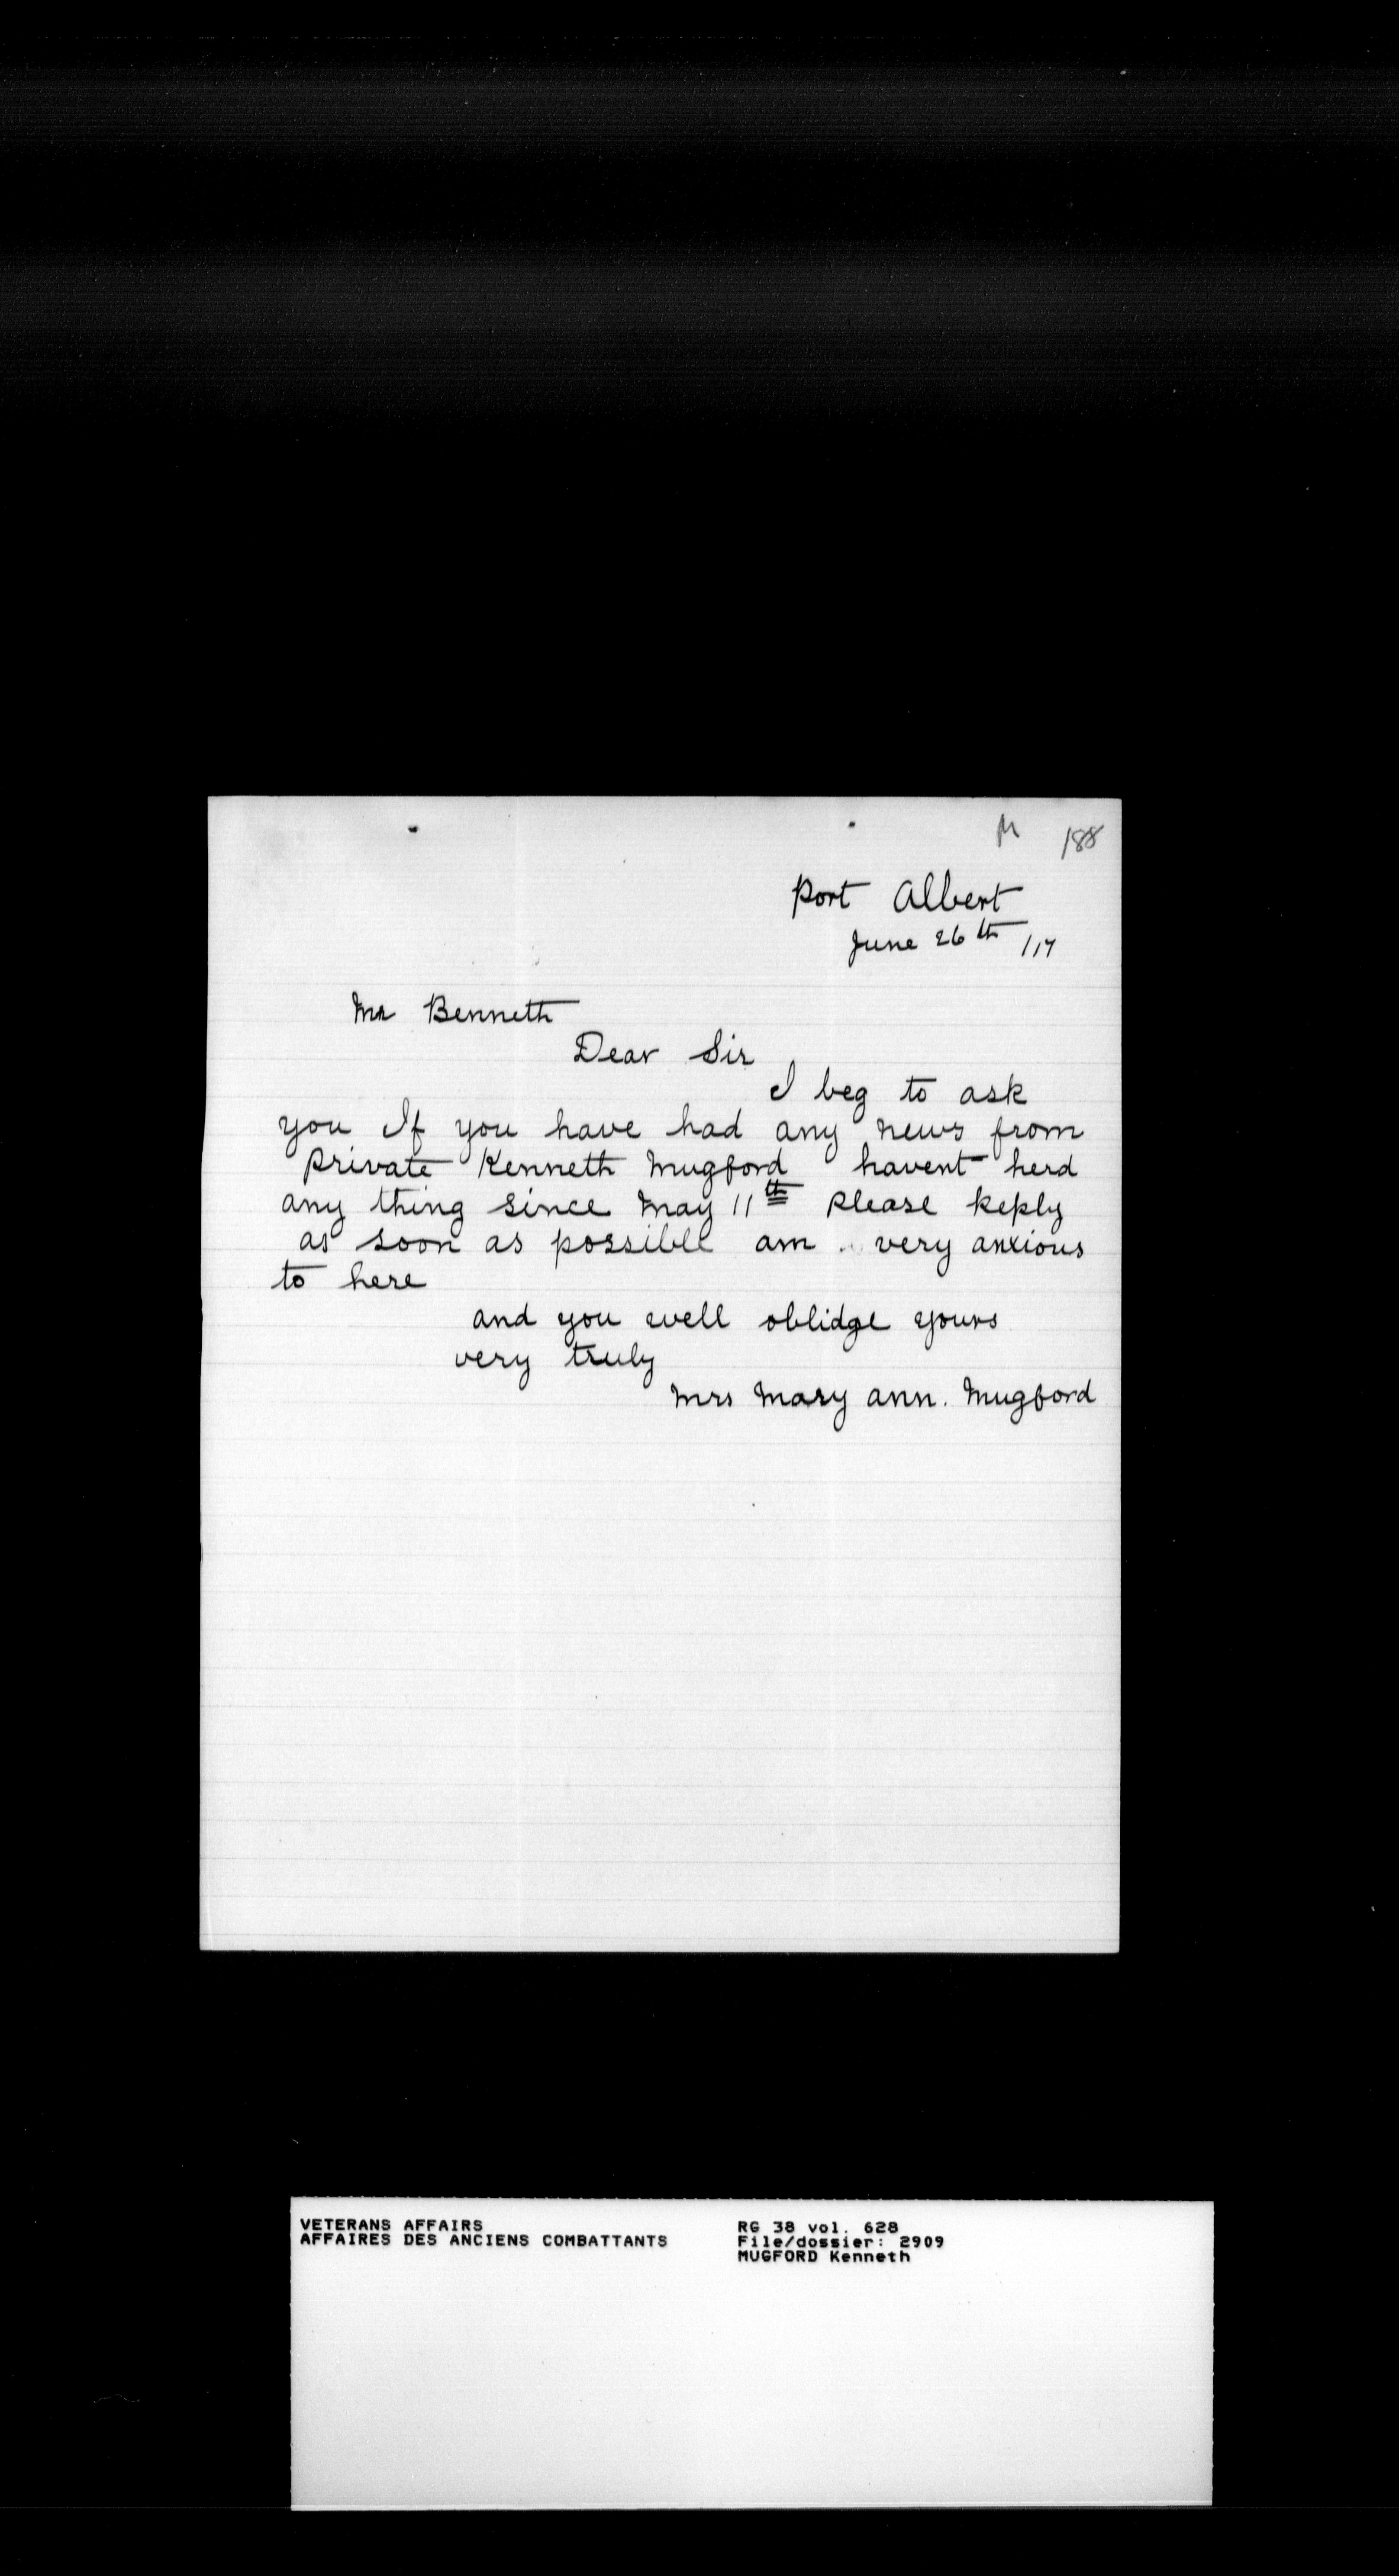 M 188
Port Albert
June 26th /17
Mr Benneth
Dear Sir
I beg to ask
you If you have had any news from
Private Kenneth Mugford havent herd
any thing since May 11th Please Reply
as soon as possible am very anxious
to here
and you well oblidge yours
very truly
Mrs Mary ann. Mugford
VETERANS AFFAIRS
AFFAIRES DES ANCIENS COMBATTANTS
RG 38 vol. 628
File/dossier: 2909
MUGFORD Kenneth